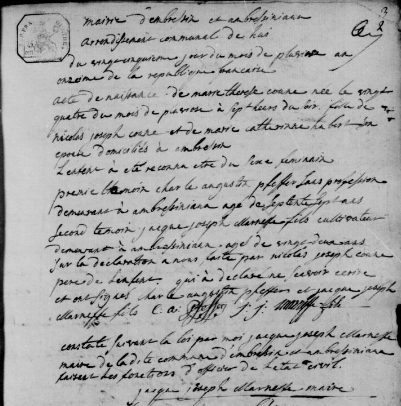 mairie d'embresin et ambresiniaux
arrondissement communale de huis
du vingt cinquieme jour du mois de pluviose an
onzieme de la republique francaise
acte de naissance de marie therese conne née le vingt
quatre du mois de pluviose à sept heurs du soir, fille de
nicolas joseph conne et de marie catherinne habert son
epouse domiciliés à ambresin
L'enfent à été reconnu etre du sexe feminin
premie temoin charle augustin pfeffer sans profession
demeurant à ambresiniau age de septente sept ans
second temoin jacque joseph marneffe fils cultivateur
demeurant à ambresiniau agé de vingt deux ans
sur la declaration à nous faite par nicolas joseph conne
pere de l'enfent qui à declaré ne scavoir ecrire
et ont signés charle augustin pfeffer et jacque joseph
marneffe fils C. a. pfeffer j. j. marneffe fils
constaté suivant la loi par moi jacque joseph marneffe
maire de la dite commune d'embresin et ambresiniau
faisant les fonctions d'officier de l'etat civil.
jacque joseph marneffe maire